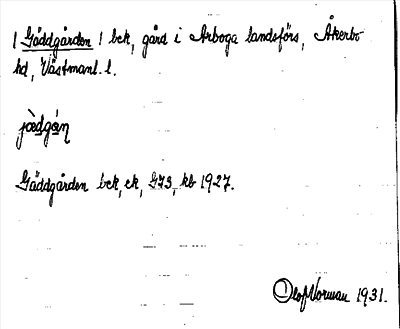 | Gäddgården | bek, gård i Arboga landsförs, Åkerbo
hd, Västmanl. l.
jædgán
Gäddgården bek, ek, GJ3, kb 1927.
Olof Norman 1931.